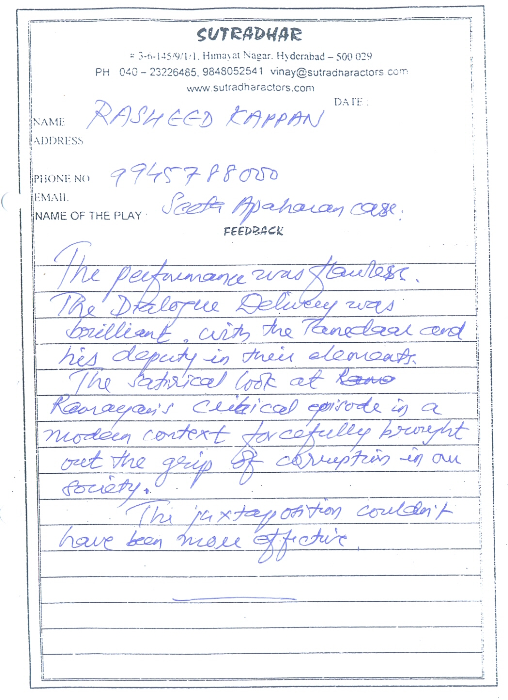 SUTRADHAR
# 3-6-145/9/1-1, Himayat Nagar, Hyderabad – 500 029
PH 040 – 23226485, 9848052541 vinay@sutradharactors.com
www.sutradharactors.com
DATE :
NAME RASHEED KAPPAN
ADDRESS
PHONE NO 9945788000
EMAIL
NAME OF THE PLAY Seeta Apaharan case.
FEEDBACK
The performance was flawless.
The Dialogue Delivery was
brilliant, with the Tanedaar and
his deputy in their elements.
The satirical look at Rama
Ramayan's critical episode in a
modern context forcefully brought
out the grip of corruption in our
society.
The juxtaposition couldn't
have been more effective.